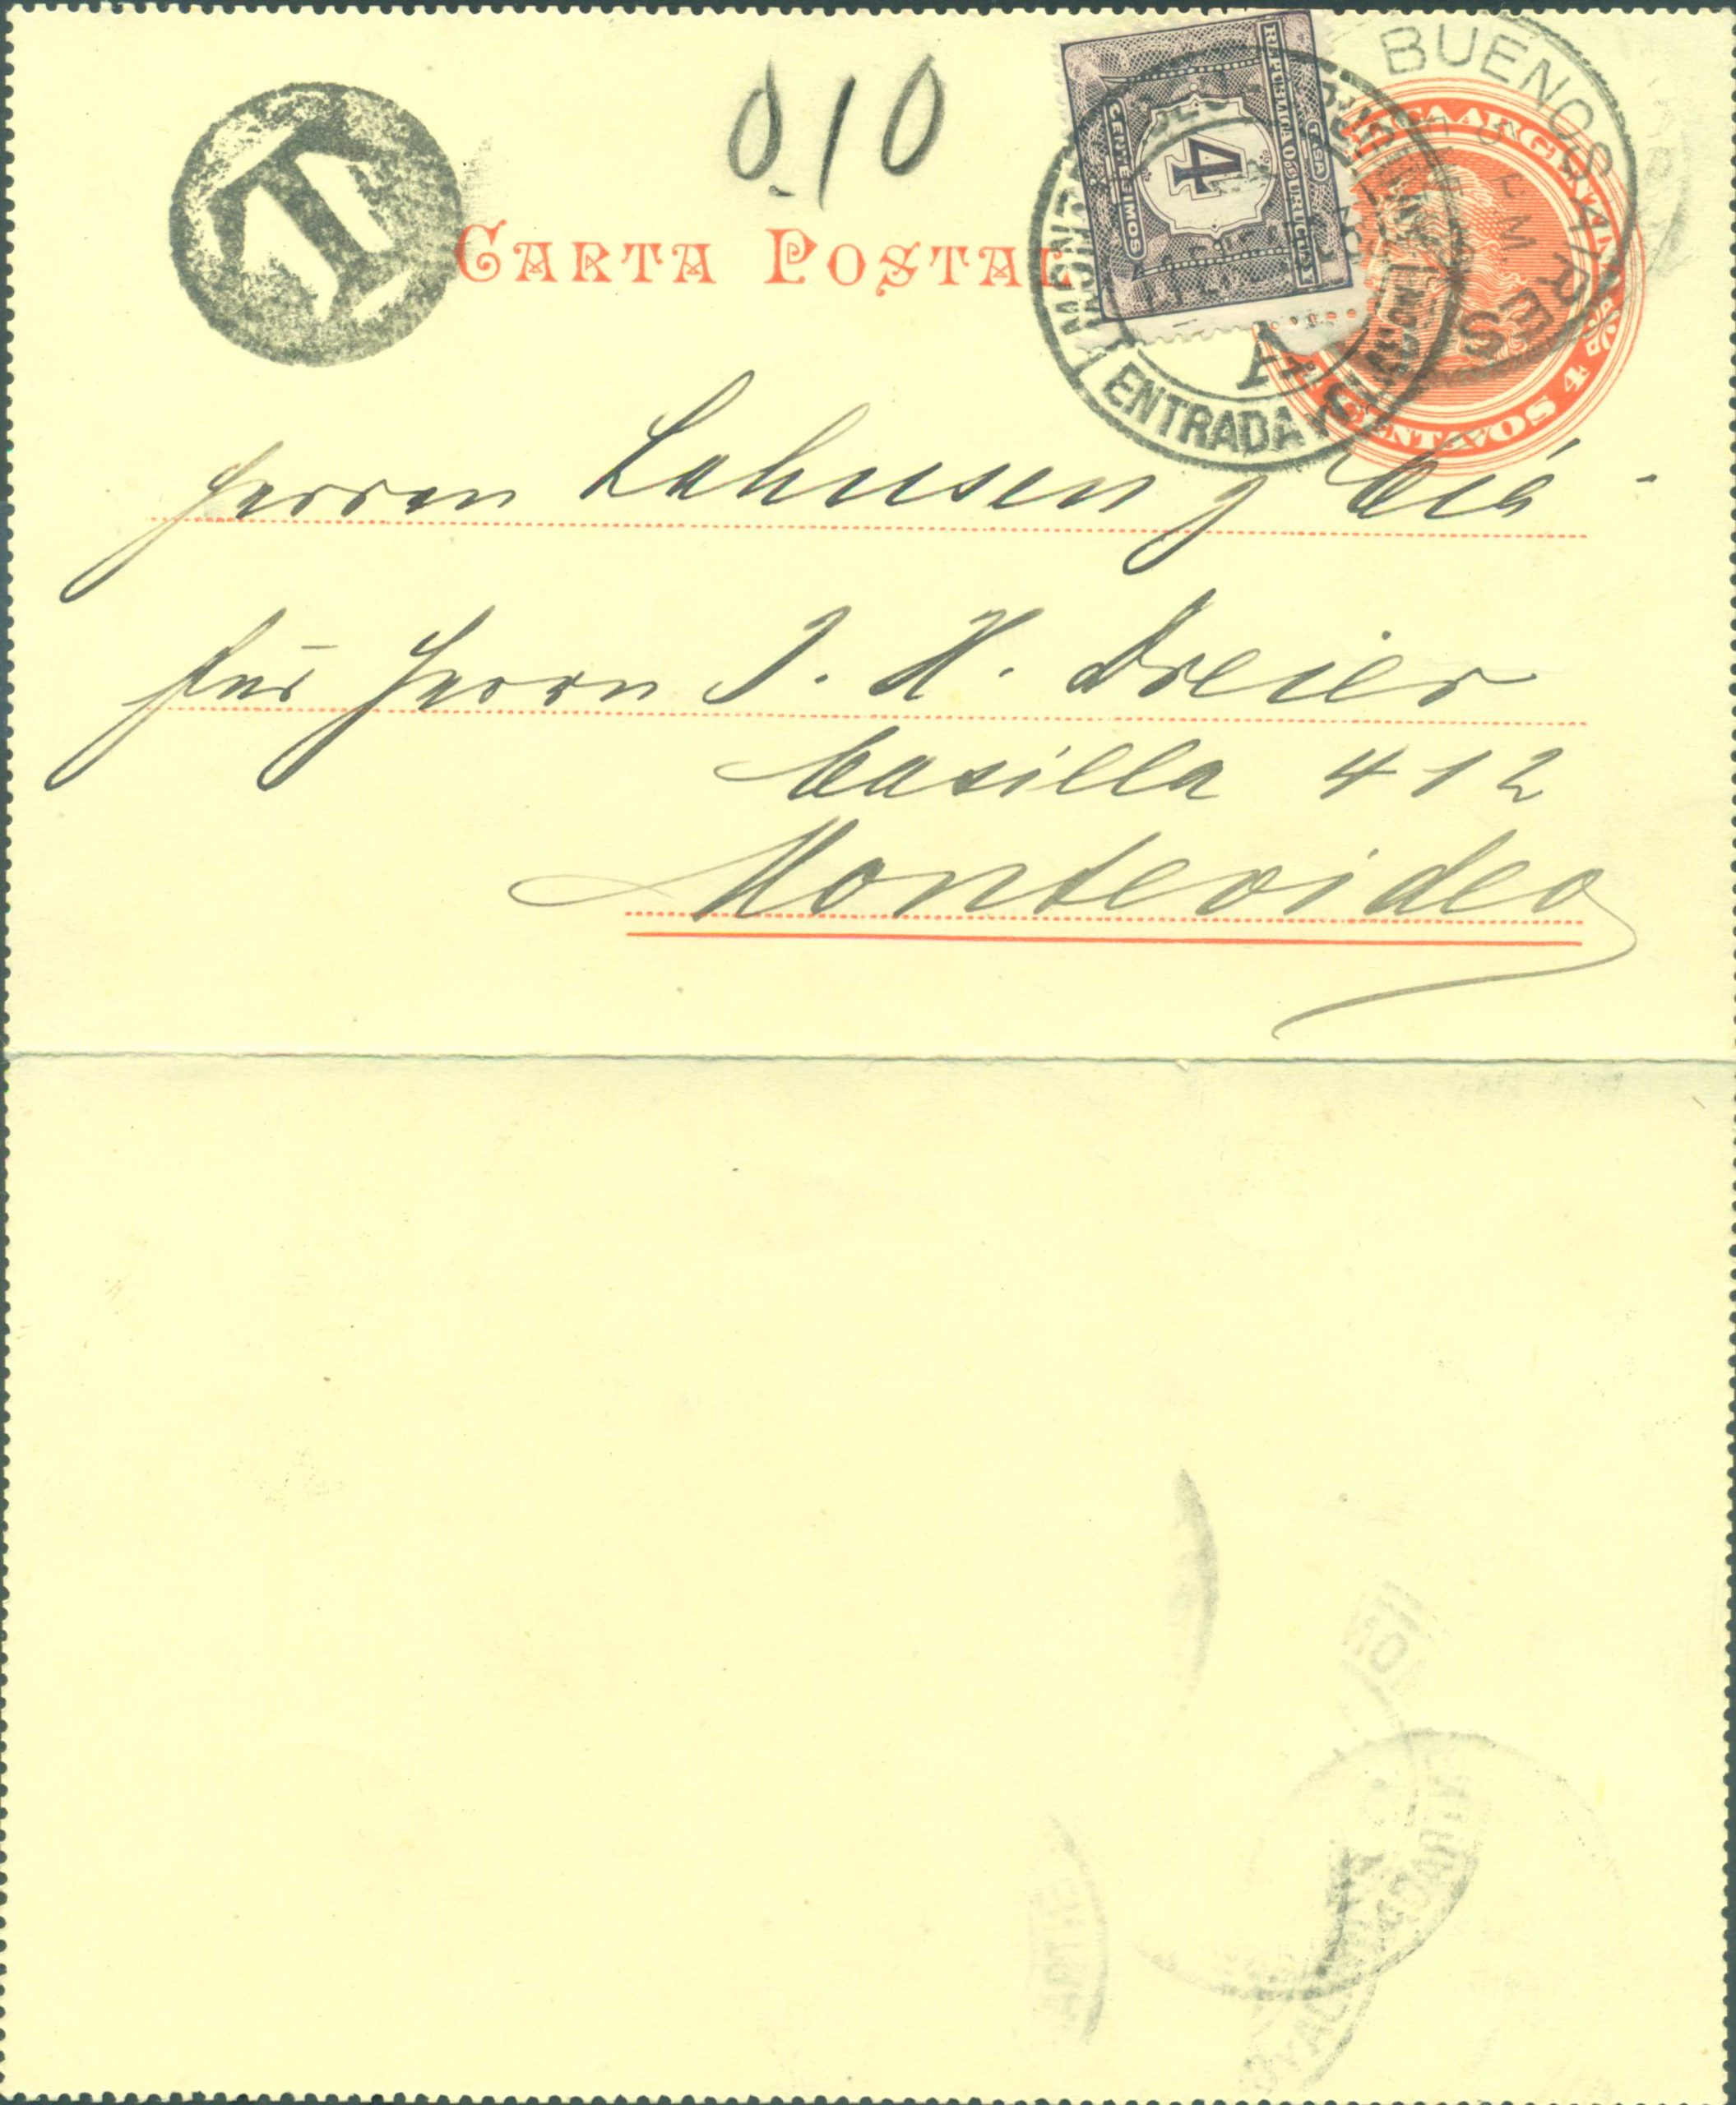 T
0.10
CARTA POSTAL
BUENOS AIRES
REPUBLICA O. DEL URUGUAY
TASA
4
CENTESIMOS
ENTRADA
CENTAVOS 4
Herren Lahusen y Cia
für Herrn J. H. Dreier
Casilla 412
Montevideo